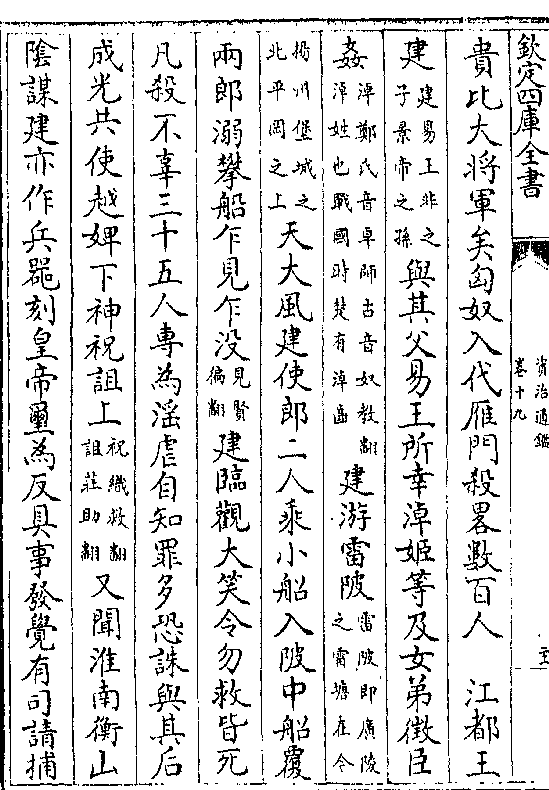 欽定四庫全書
資治通鑑
卷十九
貴比大將軍矣匈奴入代雁門殺畧數百人　江都王
建建易王非之子景帝之孫與其父易王所幸淖姬等及女弟徵臣
姦淖鄭氏音卓師古音奴教翻淖姓也戰國時楚有淖齒建游雷陂雷陂即廣陵之雷塘在今
揚州堡城之北平岡之上天大風建使郎二人乘小船入陂中船覆
兩郎溺攀船乍見乍没見賢徧翻建臨觀大笑令勿救皆死
凡殺不辜三十五人專為淫虐自知罪多恐誅與其后
成光共使越婢下神祝詛上祝織救翻詛莊助翻又聞淮南衡山
陰謀建亦作兵器刻皇帝璽為反具事發覺有司請捕